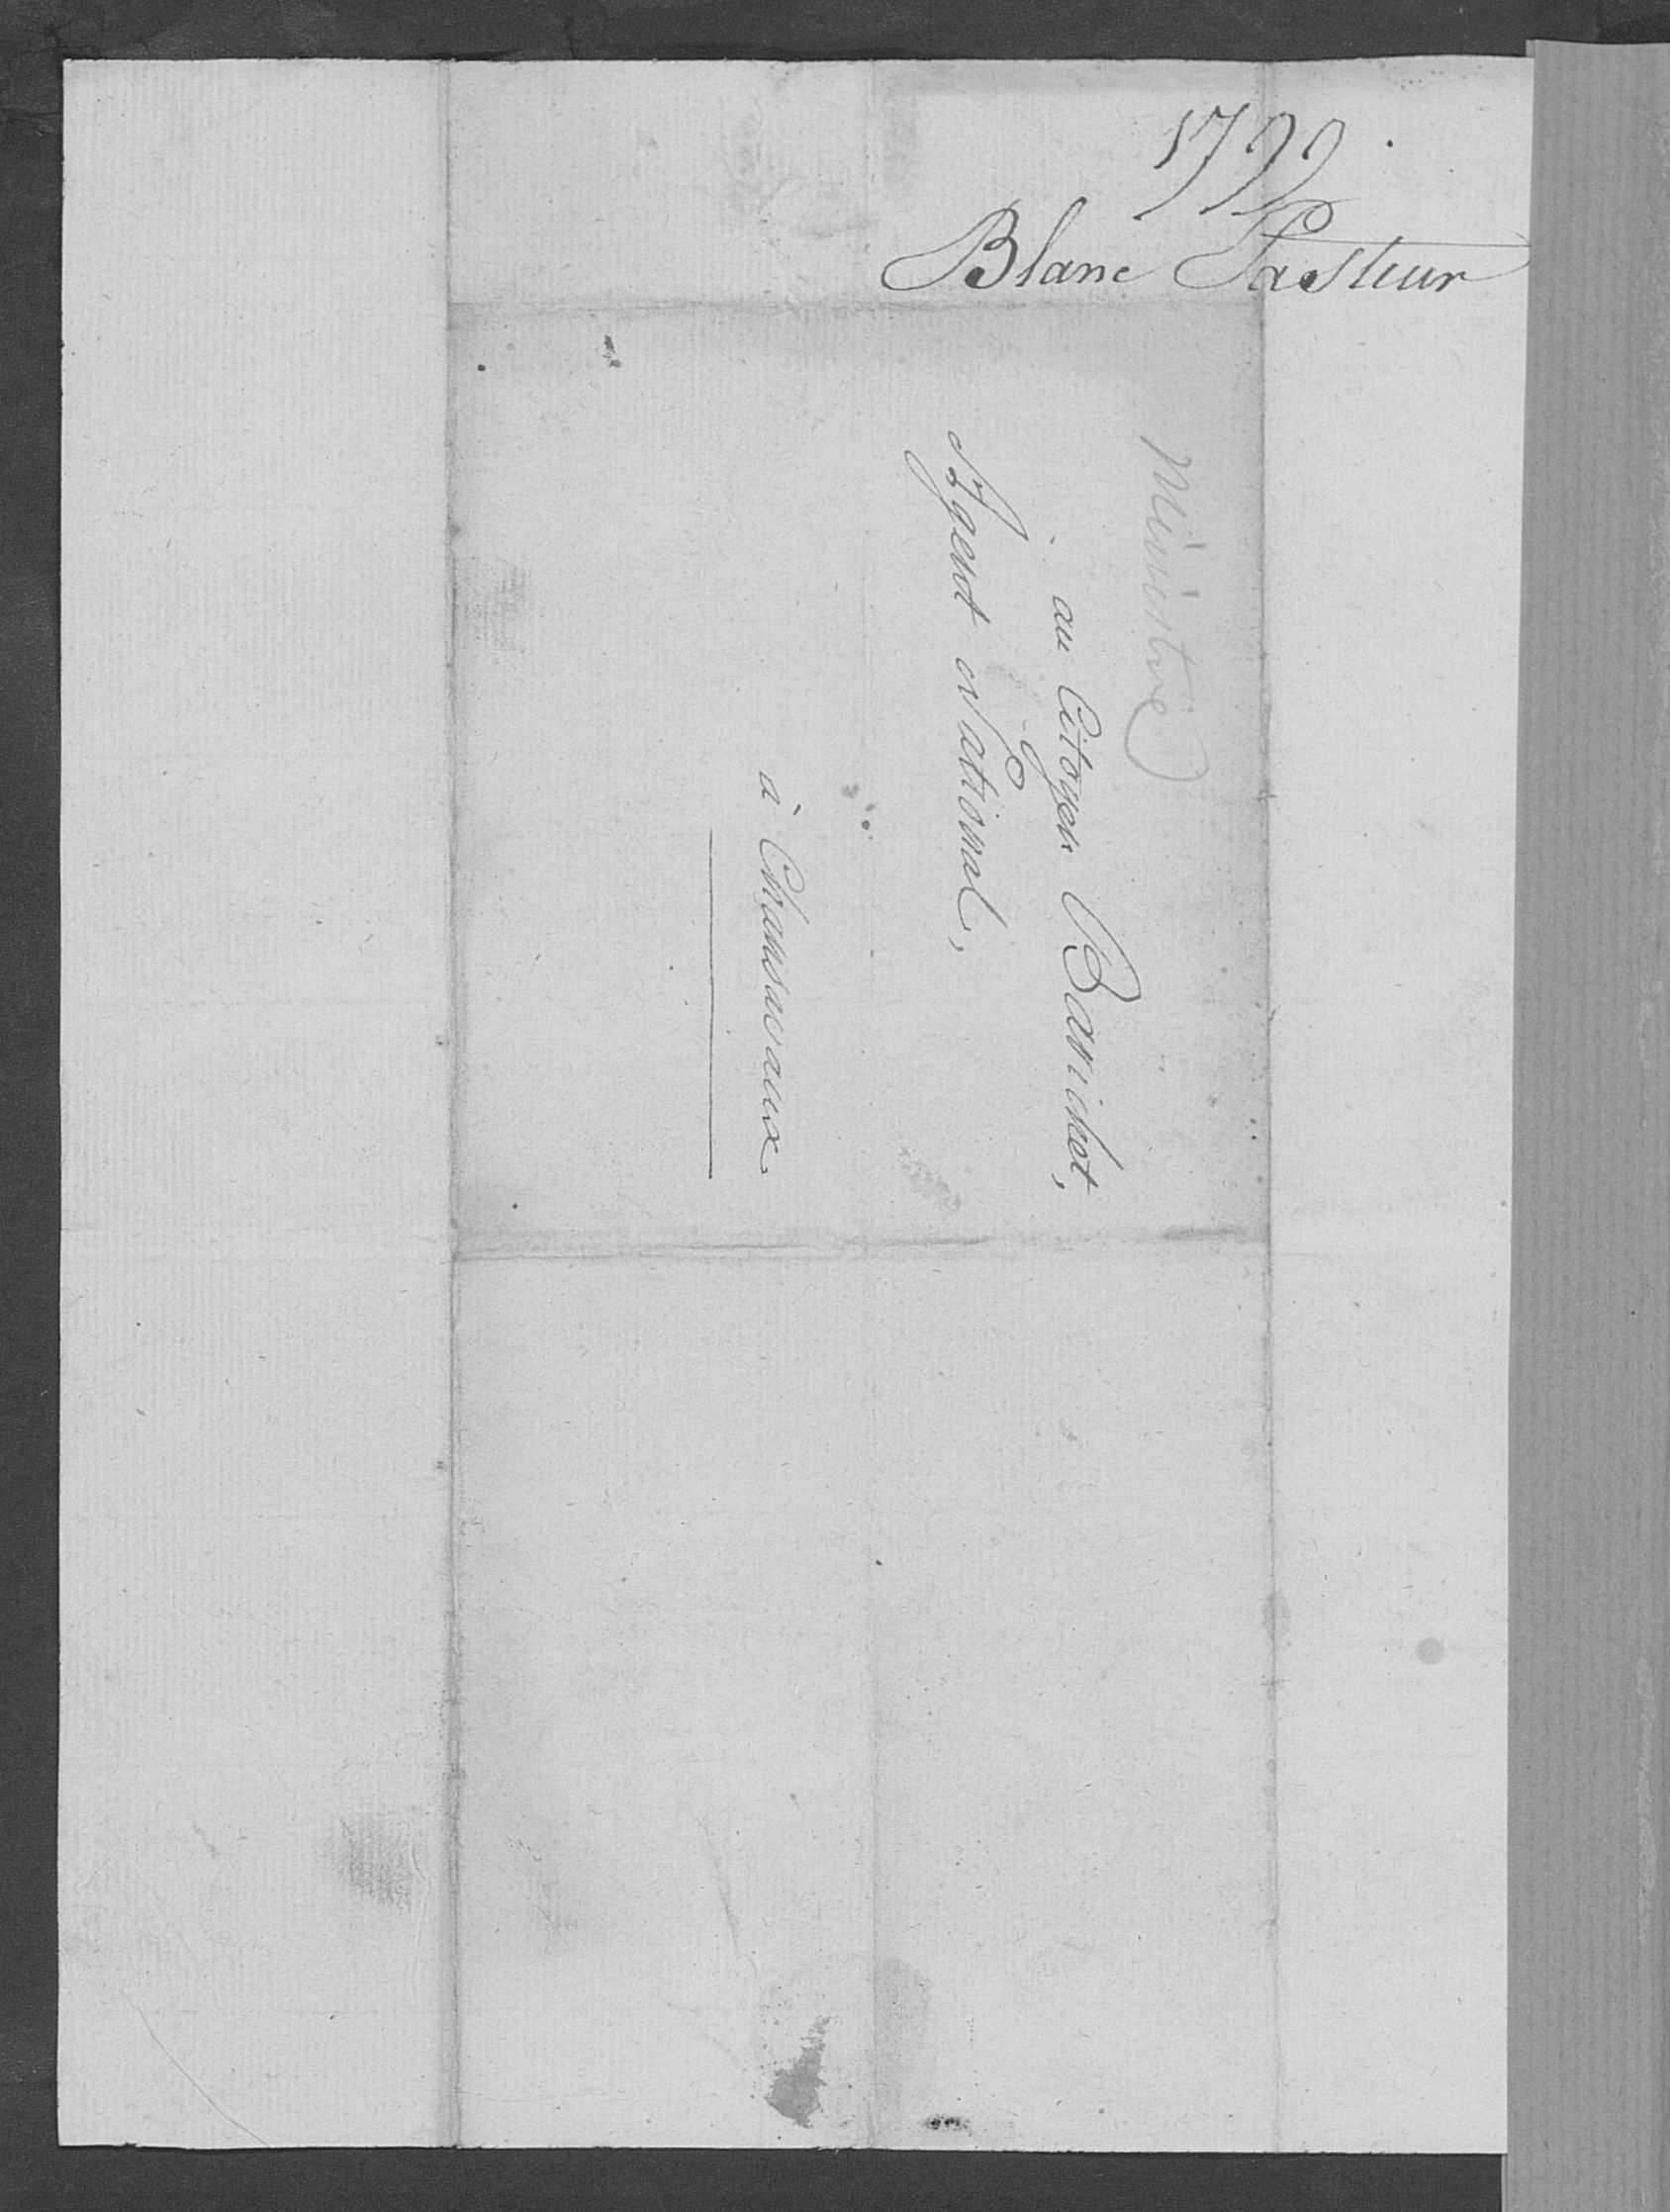 1799.
Blanc Pasteur
Ministre
au Citoyen Barichot,
Agent National,
à Chamsauvaux.